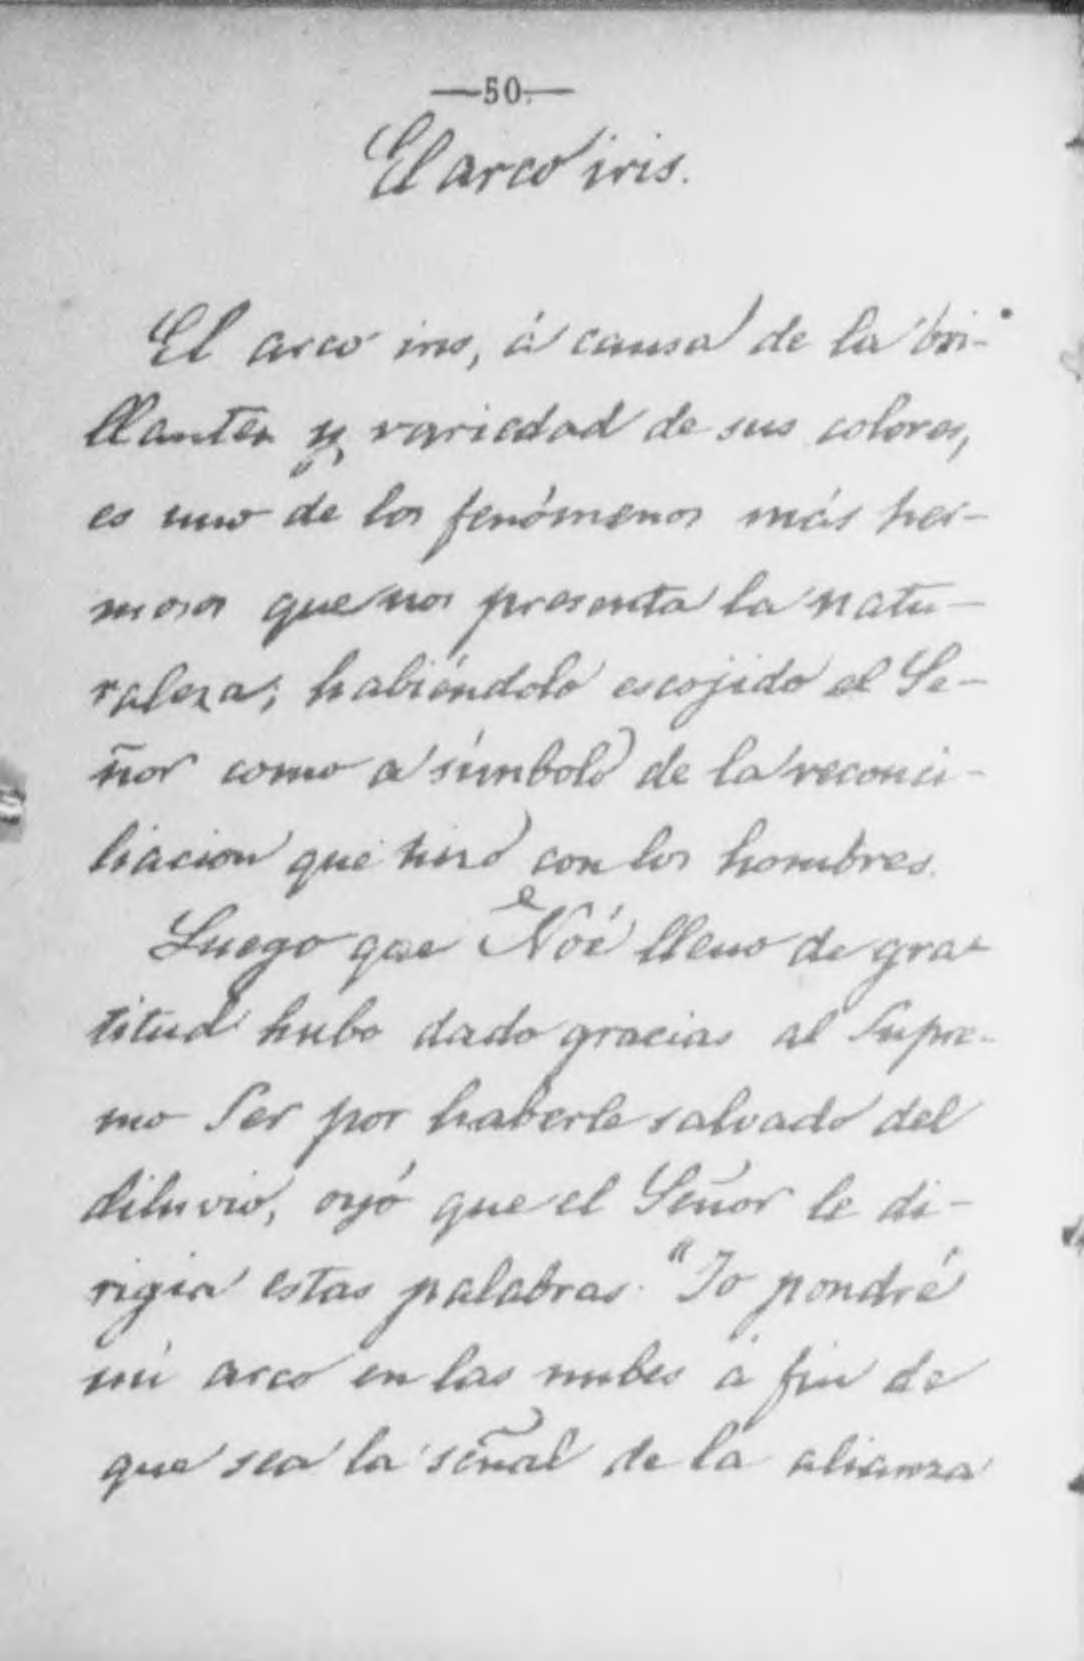 —50.—
El arco iris.
El arco iris, á causa de la bri-
llantez y variedad de sus colores,
es uno de los fenómenos más her-
mosos que nos presenta la natu-
raleza; habiéndolo escojido el Se-
ñor como a símbolo de la reconci-
liacion que hizo con los hombres.
Luego que Noé lleno de gra-
titud hubo dado gracias al Supre-
mo Ser por haberle salvado del
diluvio, oyó que el Señor le di-
rigia estas palabras. "Yo pondré
mi arco en las nubes á fin de
que sea la señal de la alianza